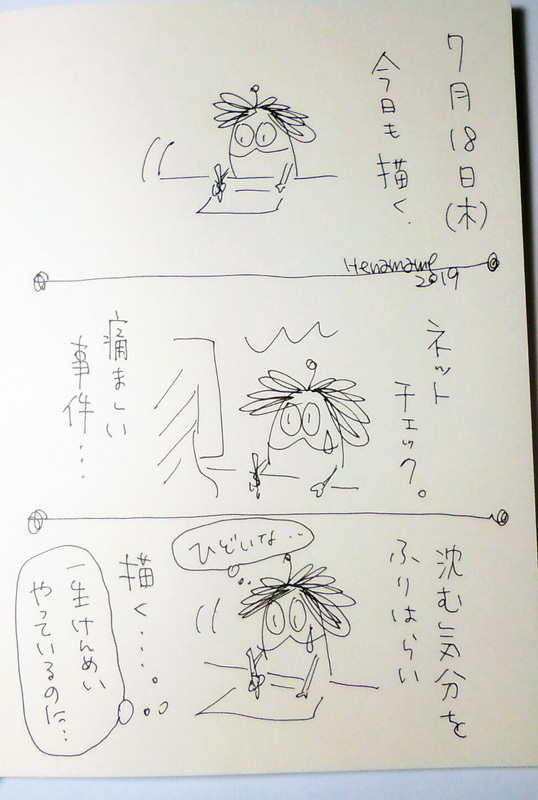 7月18日(木)
今日も描く.
Henamame
2019
ネット
チェック。
痛ましい
事件...
沈む気分を
ふりはらい
ひどいな...
描く....。
一生けんめい
やっているのに...